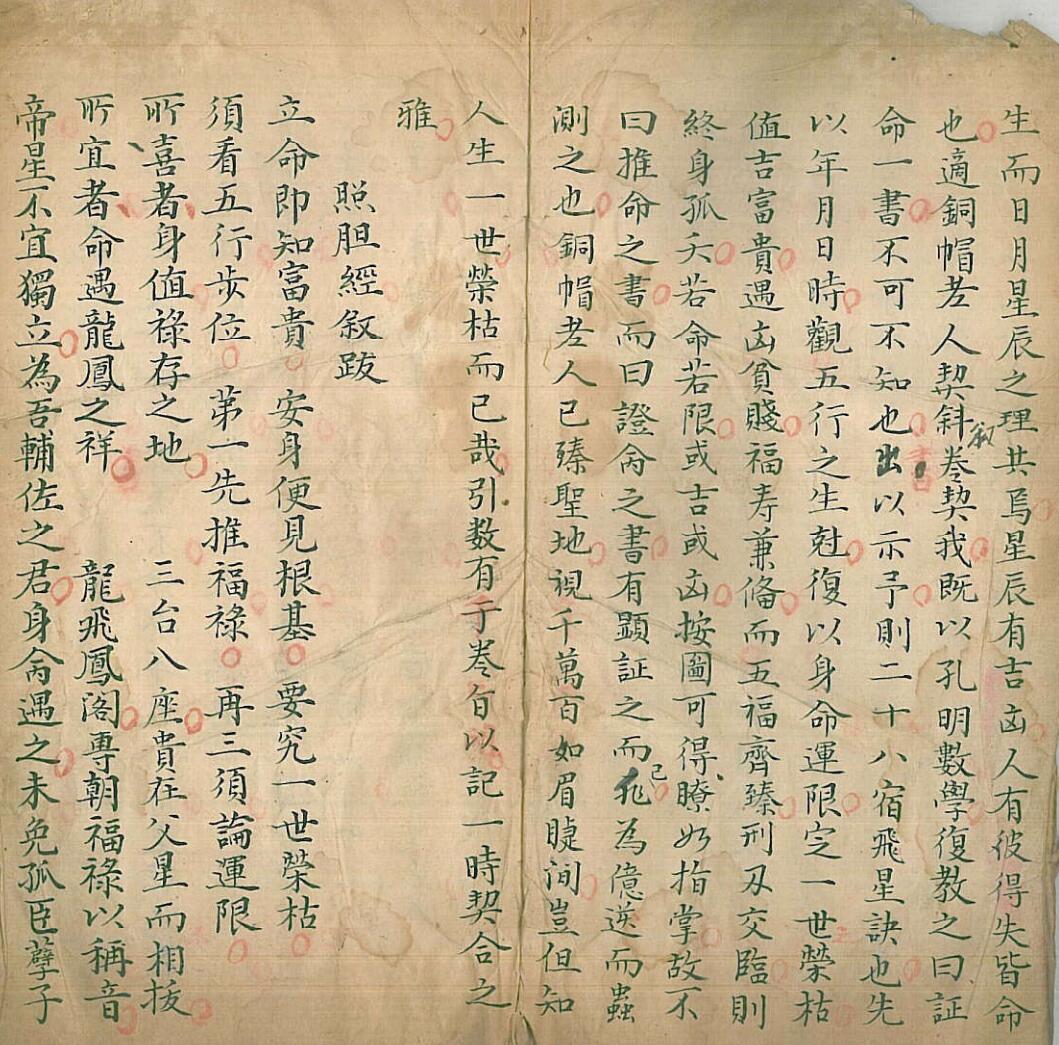 生而日月星辰之理共焉星辰有吉凶人有彼得失皆命
也適銅帽老人契斜叙卷契我既以孔明數學復教之曰証
命一書不可不知也出以示予則二十八宿飛星訣也先
以年月日時觀五行之生尅復以身命運限定一世榮枯
值吉富貴遇凶貧賤福寿兼俻而五福齊臻刑刃交臨則
終身孤夭若命若限或吉或凶按圖可得瞭如指掌故不
曰推命之書而曰證命之書有顕証之而已為億送而蟲
測之也銅帽老人已臻聖地視千萬百如眉睫间豈但知
人生一世榮枯而已哉引数有于卷旨以記一時契合之
雅
照胆經叙跋
立命即知富貴 安身便見根基 要究一世榮枯
須看五行步位 苐一先推福禄 再三須論運限
所喜者身值禄存之地 三台八座貴在父星而相扳
所宜者命遇龍鳳之祥 龍飛鳳阁専朝福禄以稱音
帝星不宜獨立為吾輔佐之君身命遇之未免孤臣孽子